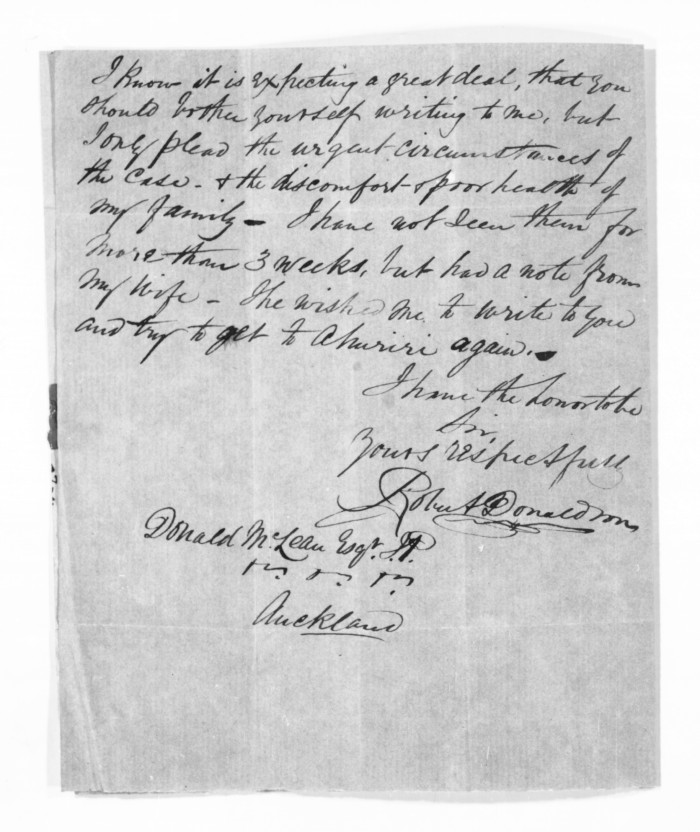 I know it is expecting a great deal, that you
should bother yourself writing to me, but
I only plead the urgent circumstances of
the case - & the discomfort & poor health of
my family - I have not seen them for
more than 3 weeks, but had a note from
my wife - She wished me to write to you
and try to get to Ahuriri again. -
I have the honor to be
Sir,
Yours respectfully
Robert Donaldson
Donald McLean Esqr.
Auckland